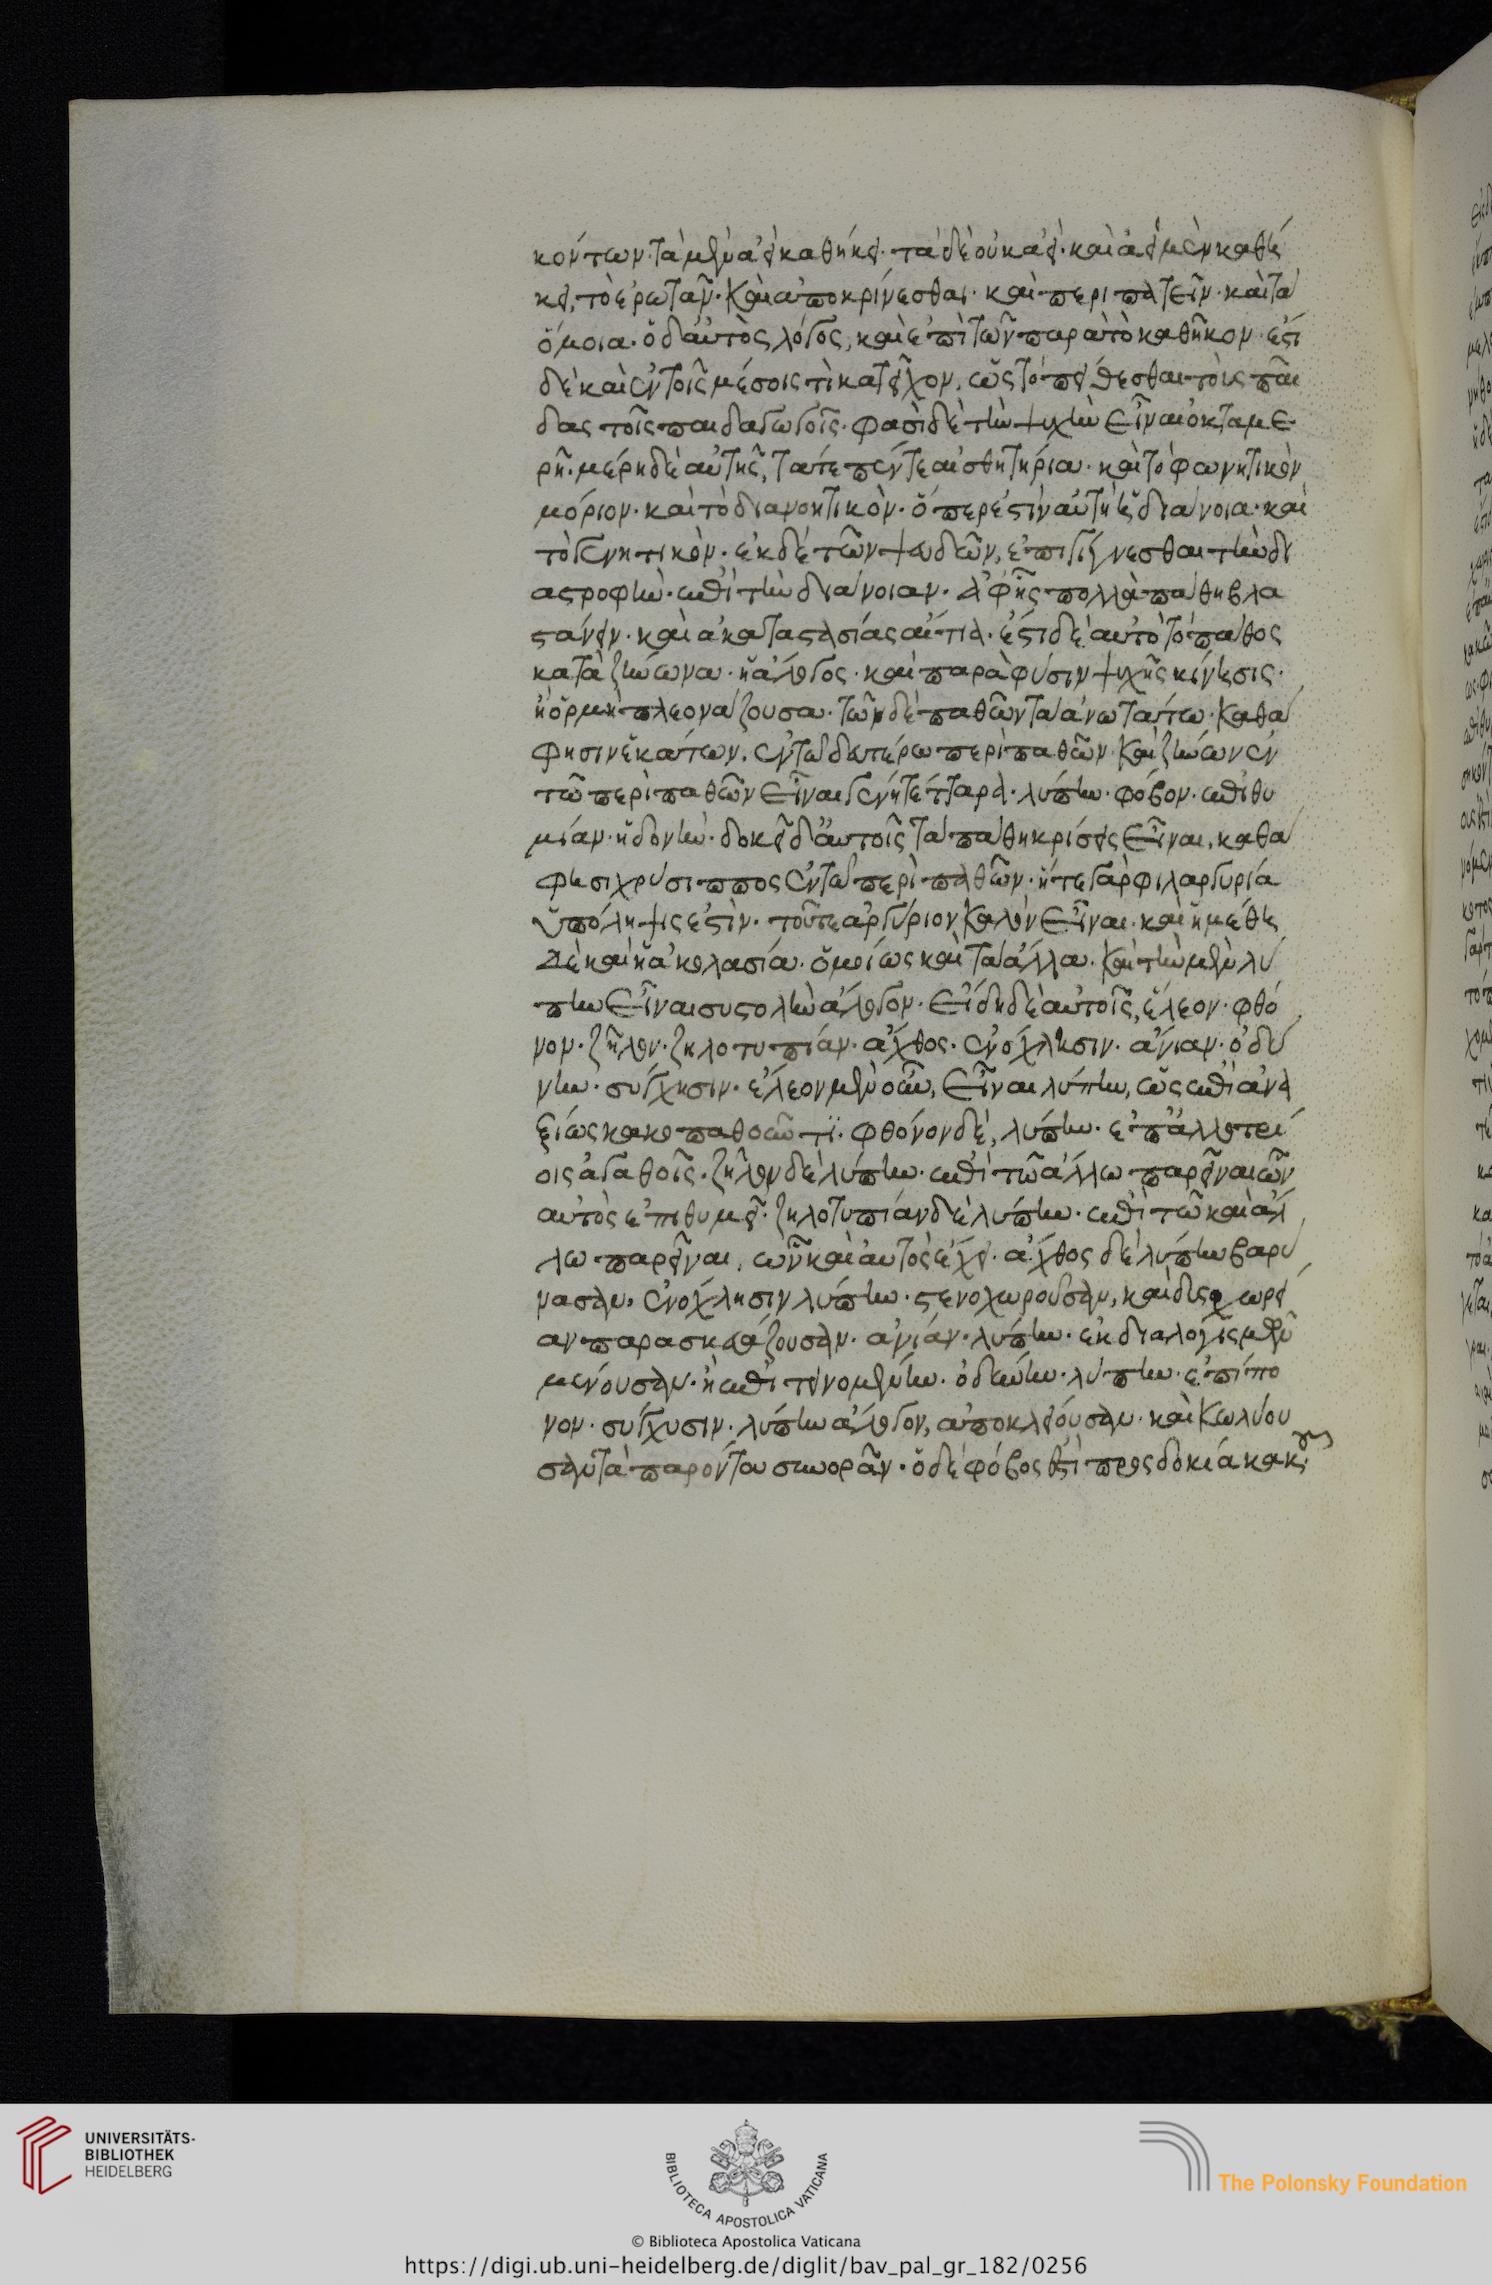 κόντων· τὰ μὲν ἀεὶ καθήκει· τὰ δὲ οὐκ ἀεί· καὶ ἀεὶ μὲν καθή
κει, τὸ ἐρωτᾶν· καὶ ἀποκρίνεσθαι· καὶ περιπατεῖν· καὶ τὰ
ὅμοια· ὁ δ' αὐτὸς λόγος, καὶ ἐπὶ τῶν παρὰ τὸ καθῆκον· ἔστι
δὲ καὶ ἐν τοῖς μέσοις τὶ κατεῖχον, ὡς τὸ πείθεσθαι τοὺς παῖ
δας τοῖς παιδαγωγοῖς· φασὶ δὲ τὴν ψυχὴν εἶναι ὀκταμε
ρῆ· μέρη δὲ αὐτῆς, τά τε πέντε αἰσθητήρια· καὶ τὸ φωνητικὸν
μόριον· καὶ τὸ διανοητικὸν· ὅπερ ἐστὶν αὐτὴ ἡ διάνοια· καὶ
τὸ γεννητικόν· ἐκ δὲ τῶν ψευδῶν, ἐπιγίγνεσθαι τὴν δι
αστροφὴν· ἐπὶ τὴν διάνοιαν· ἀφ' ἧς πολλὰ πάθη βλα
στάνειν· καὶ ἀκαταστασίας αἴτια· ἔστι δὲ αὐτὸ τὸ πάθος
κατὰ ζήνωνα· ἡ ἄλογος· καὶ παρὰ φύσιν ψυχῆς κίνησις·
ἢ ὁρμὴ πλεονάζουσα· τῶν δὲ παθῶν τὰ ἀνωτάτω· καθά
φησιν ἑκάτων, ἐν τῶ δευτέρω περὶ παθῶν· καὶ ζήνων ἐν
τῶ περὶ παθῶν εἶναι γένη τέτταρα· λύπην· φόβον· ἐπιθυ
μίαν· ἡδονήν· δοκεῖ δ' αὐτοῖς τὰ πάθη κρίσεις εἶναι, καθά
φησι χρύσιππος ἐν τῶ περὶ παθῶν· ἥ τε γὰρ φιλαργυρία
ὑπόληψις ἐστὶν· τοῦ τε ἀργύριον καλὸν εἶναι· καὶ ἡ μέθη
δὲ καὶ ἡ ἀκολασία· ὁμοίως καὶ τὰ ἄλλα· καὶ τὴν μὲν λύ
πην εἶναι συστολὴν ἄλογον· εἴδη δὲ αὐτοῖς, ἔλεον· φθό
νον· ζῆλον· ζηλοτυπίαν· ἄχθος· ἐνόχλησιν· ἀνίαν· ὀδύ
νην· σύγχησιν· ἔλεον μὲν οὖν, εἶναι λύπην, ὡς ἐπὶ ἀνα
ξίως κακοπαθοῦντι· φθόνον δέ, λύπην· ἐπ' ἀλλοτρί
οις ἀγαθοῖς· ζῆλον δὲ λύπην· ἐπὶ τῶ ἄλλω παρεῖναι ὧν
αὐτὸς ἐπιθυμεῖ· ζηλοτυπίαν δὲ λύπην· ἐπὶ τῶ καὶ ἄλ
λω παρεῖναι, ὧν καὶ αὐτὸς ἔχει· ἄχθος δὲ λύπην βαρύ
νασαν, ἐνόχλησιν λύπην· στενοχωροῦσαν, καὶ δυσχωρεί
αν παρασκευάζουσαν· ἀνίαν· λύπην· ἐκ διαλογισμῶν
μένουσαν· ἢ ἐπιτεινομένην· ὀδύνην· λύπην· ἐπίπο
νον· σύγχυσιν· λύπην ἄλογον, ἀποκλείουσαν· καὶ κωλύου
σαν τὰ παρόντα συνορᾶν· ὁ δὲ φόβος ἐστὶ προσδοκία κακοῦ·
UNIVERSITÄTS-
BIBLIOTHEK
HEIDELBERG
BIBLIOTECA APOSTOLICA VATICANA
The Polonsky Foundation
© Biblioteca Apostolica Vaticana
https://digi.ub.uni-heidelberg.de/diglit/bav_pal_gr_182/0256